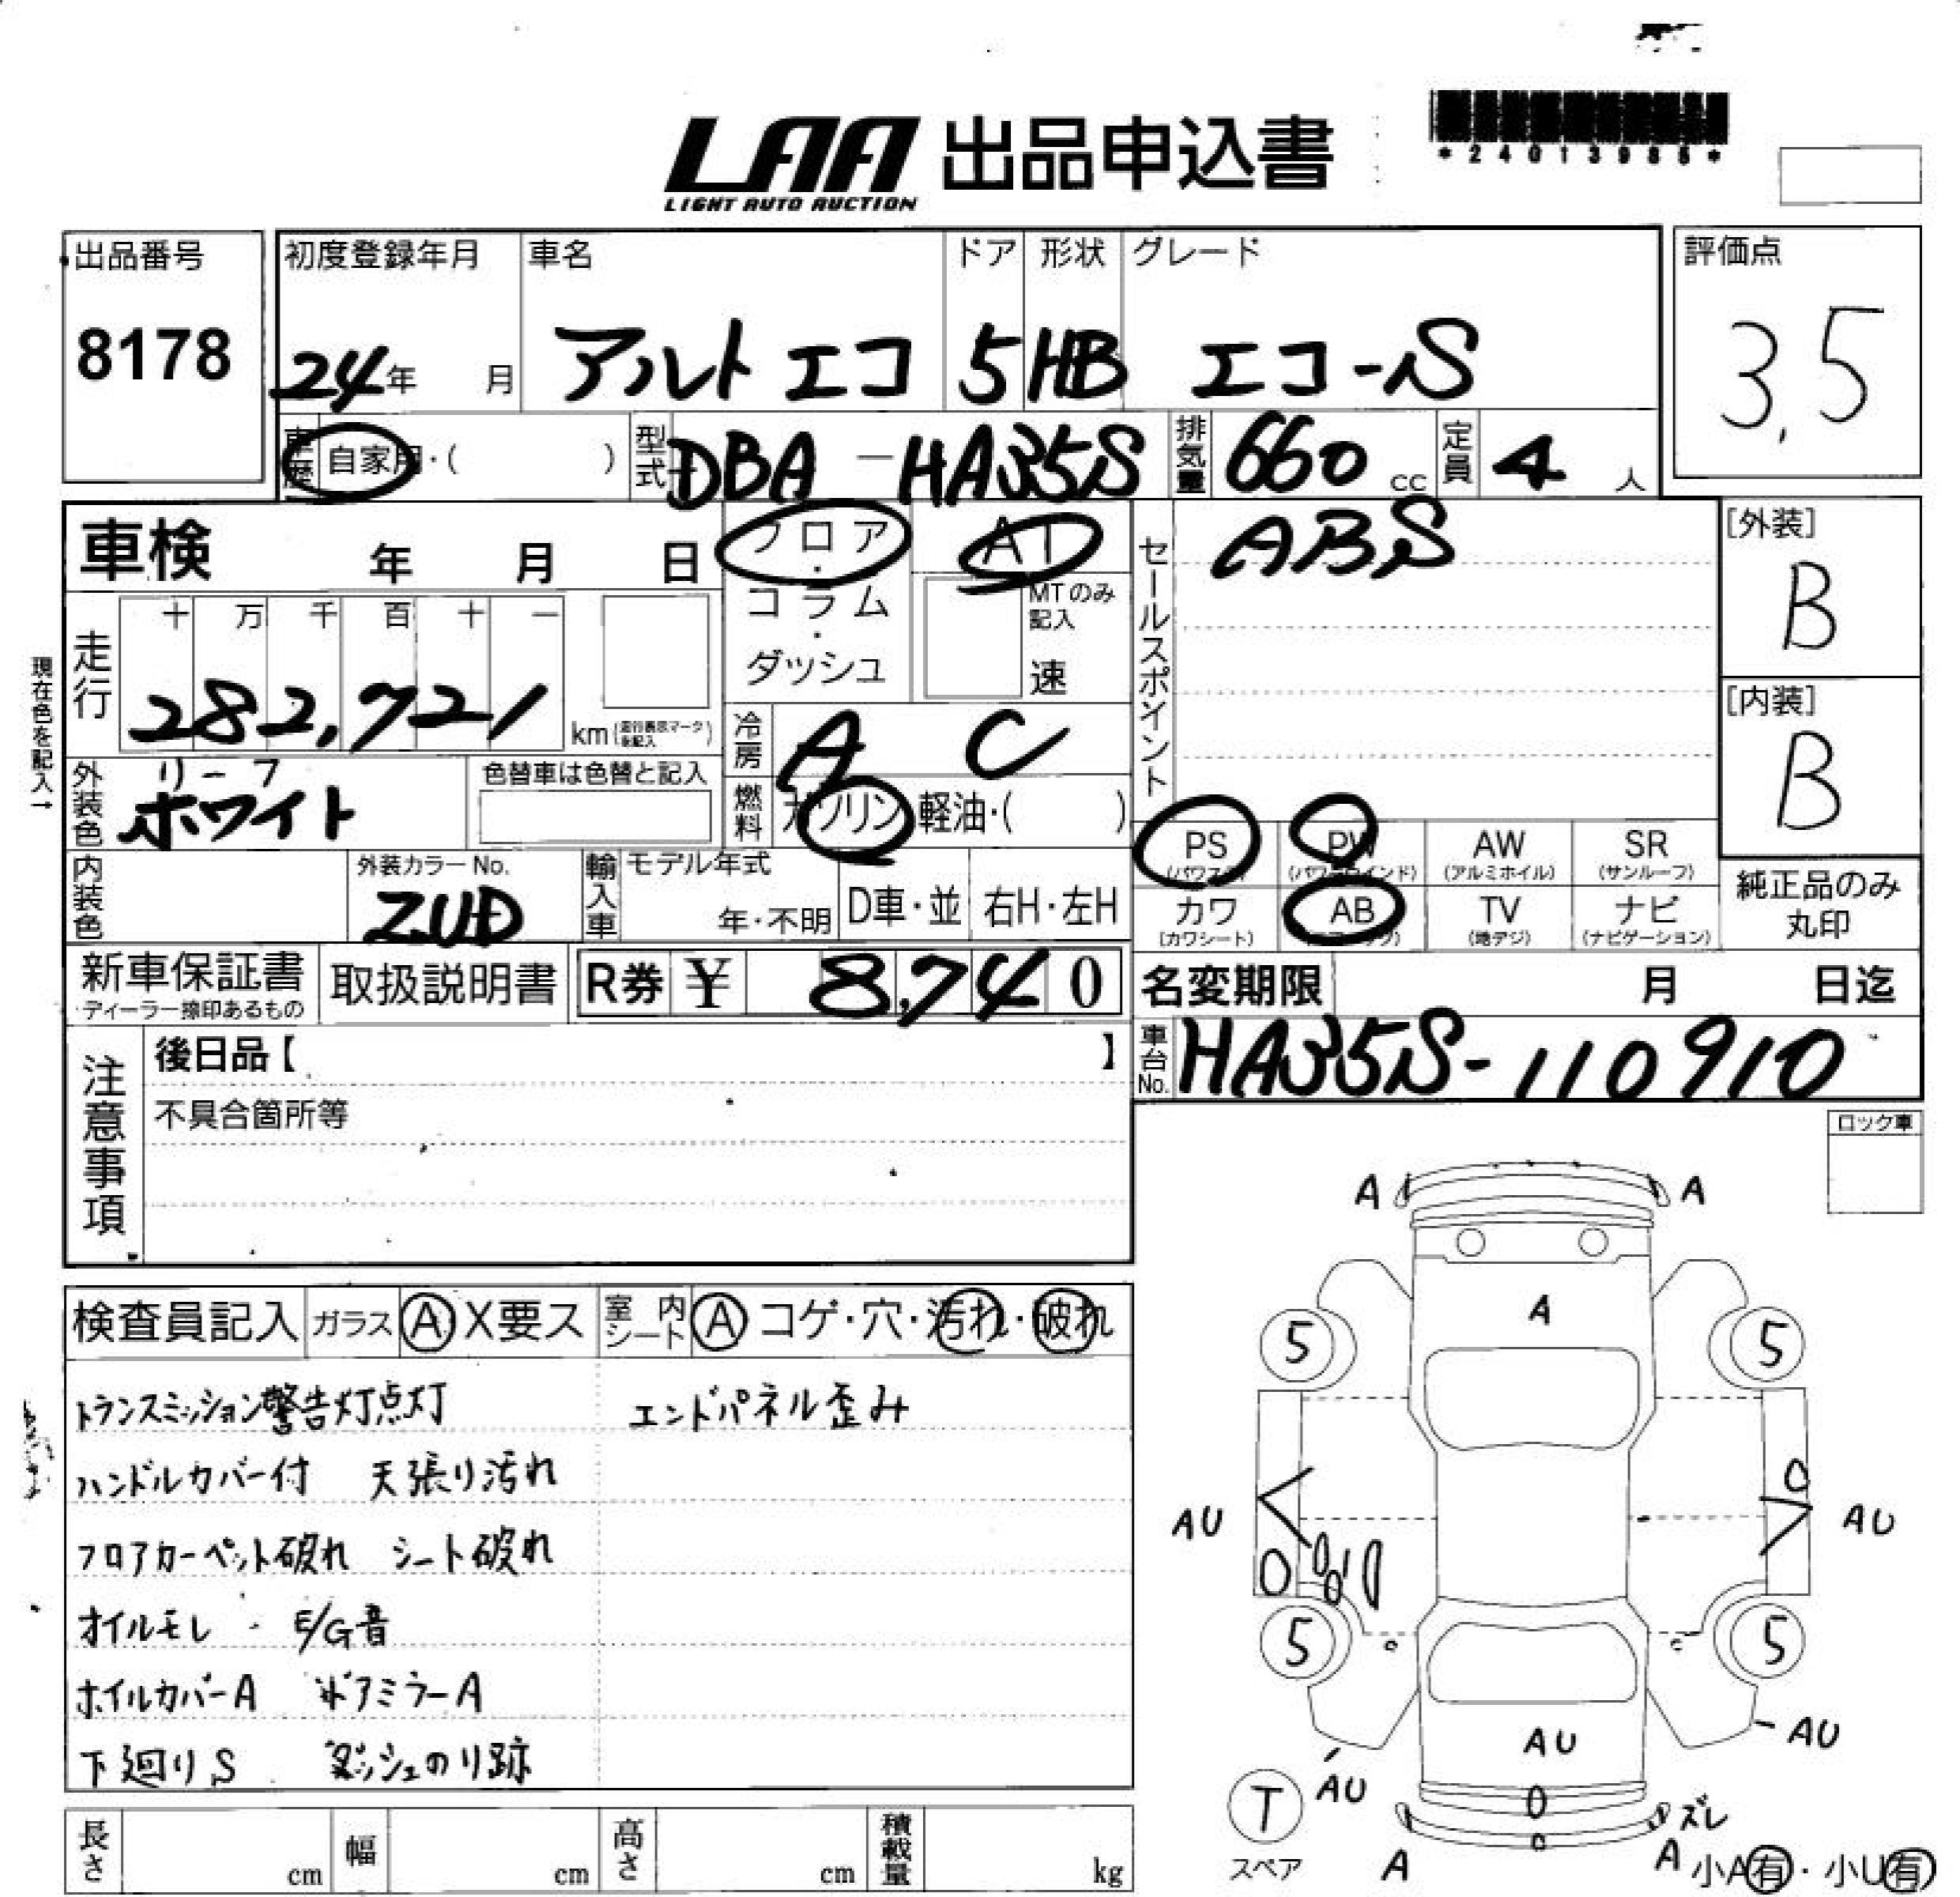 LAA 出品申込書
LIGHT AUTO AUCTION
*24013985*
出品番号 8178
初度登録年月 24年 月
車名 アルト エコ
ドア 5
形状 HB
グレード エコ-S
評価点 3.5
車歴 自家用・( )
型式 DBA-HA35S
排気量 660 cc
定員 4 人
車検 年 月 日
フロア・コラム・ダッシュ
AT
MTのみ記入 速
セールスポイント ABS
[外装] B
[内装] B
現在色を記入→
走行 十 万 千 百 十 一
282,721 km (走行表示マークを記入)
冷房 AC
外装色 リーフホワイト
色替車は色替と記入
燃料 ガソリン・軽油・( )
PS (パワステ) PW (パワーウインド) AW (アルミホイル) SR (サンルーフ)
カワ (カワシート) AB (エアバッグ) TV (地デジ) ナビ (ナビゲーション)
純正品のみ丸印
内装色
外装カラーNo. ZUD
輸入車 モデル年式 年・不明 D車・並 右H・左H
新車保証書 ディーラー捺印あるもの
取扱説明書
R券 ¥ 8,740
名変期限 月 日迄
車台No. HA35S-110910
注意事項
後日品【 】
不具合箇所等
ロック車
検査員記入 ガラス A X要ス 室内シート A コゲ・穴・汚れ・破れ
トランスミッション警告灯点灯 エンドパネル歪み
ハンドルカバー付 天張り汚れ
フロアカーペット破れ シート破れ
オイルモレ E/G音
ホイルカバーA ドアミラーA
下廻りS ダッシュのり跡
A A
A
5 5
AU AU
5 5
AU
AU AU
T スペア
ズレ
A A 小A有・小U有
長さ cm 幅 cm 高さ cm 積載量 kg